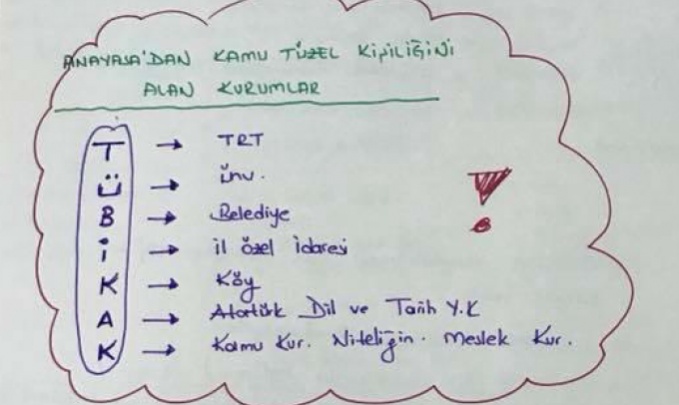 ANAYASA'DAN KAMU TÜZEL KİŞİLİĞİNİ
ALAN KURUMLAR
T → TRT
Ü → Ünv.
B → Belediye
İ → il özel idaresi
K → Köy
A → Atatürk Dil ve Tarih Y.K
K → Kamu Kur. Niteliğin. Meslek Kur.